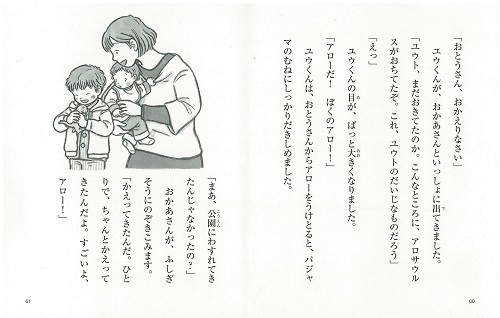 「おとうさん、おかえりなさい」
ユウくんが、おかあさんといっしょに出てきました。
「ユウト、まだおきてたのか。こんなところに、アロサウル
スがおちてたぞ。これ、ユウトのだいじなものだろう」
「えっ」
ユウくんの目が、ぱっと大きくなりました。
「アローだ！　ぼくのアロー！」
ユウくんは、おとうさんからアローをうけとると、パジャ
マのむねにしっかりだきしめました。
60
「まあ、公園にわすれてき
たんじゃなかったの？」
おかあさんが、ふしぎ
そうにのぞきこみます。
「かえってきたんだ。ひと
りで、ちゃんとかえって
きたんだよ。すごいよ、
アロー！」
61